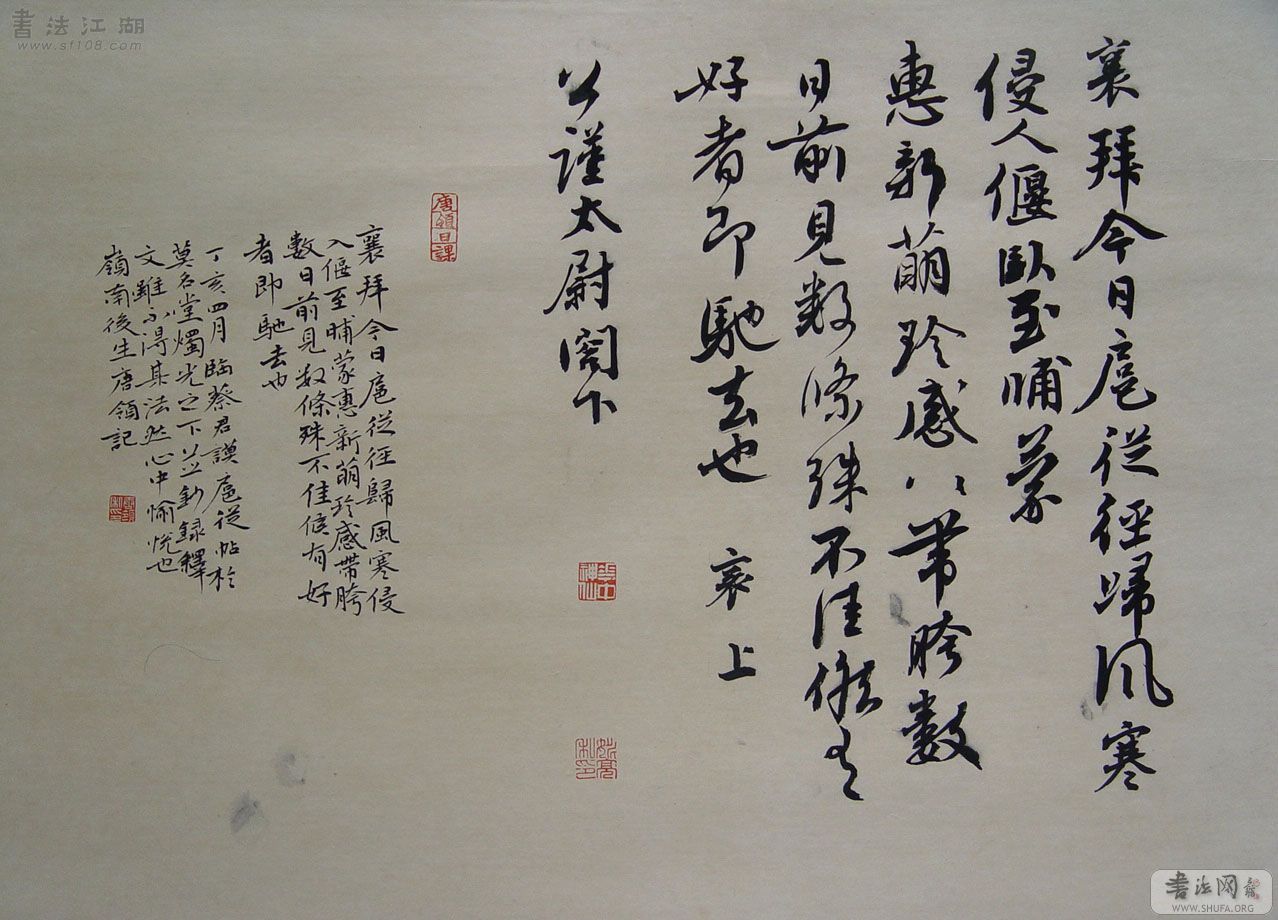 襄拜今日扈從徑歸風寒
侵人偃臥至晡蒙
惠新萠珍感〻帶胯數
日前見数條殊不佳候有
好者即馳去也 襄上
公謹太尉閣下
唐領日課
襄拜今日扈從徑歸風寒侵
入偃至晡蒙惠新萠珍感帶胯
數日前見数條殊不佳候有好
者即馳去也
丁亥四月臨蔡君謨扈從帖於
莫名堂燭光之下并鈔録釋
文雖不得其法然心中愉悅也
嶺南後生唐領記
書法江湖
www.sf108.com
書法网
WWW.SHUFA.ORG